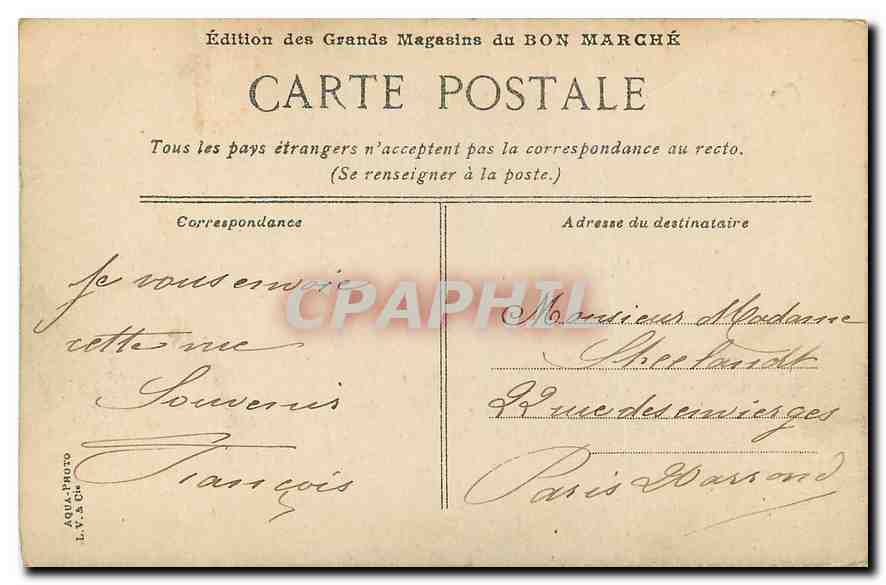 Édition des Grands Magasins du BON MARCHÉ
CARTE POSTALE
Tous les pays étrangers n'acceptent pas la correspondance au recto.
(Se renseigner à la poste.)
Correspondance
je vous envoie
cette vue
Souvenir
François
Adresse du destinataire
Monsieur Madame
22 rue des envierges
Paris 20 arrond
CPAPHIL
AQUA-PHOTO
L.V. & Cie